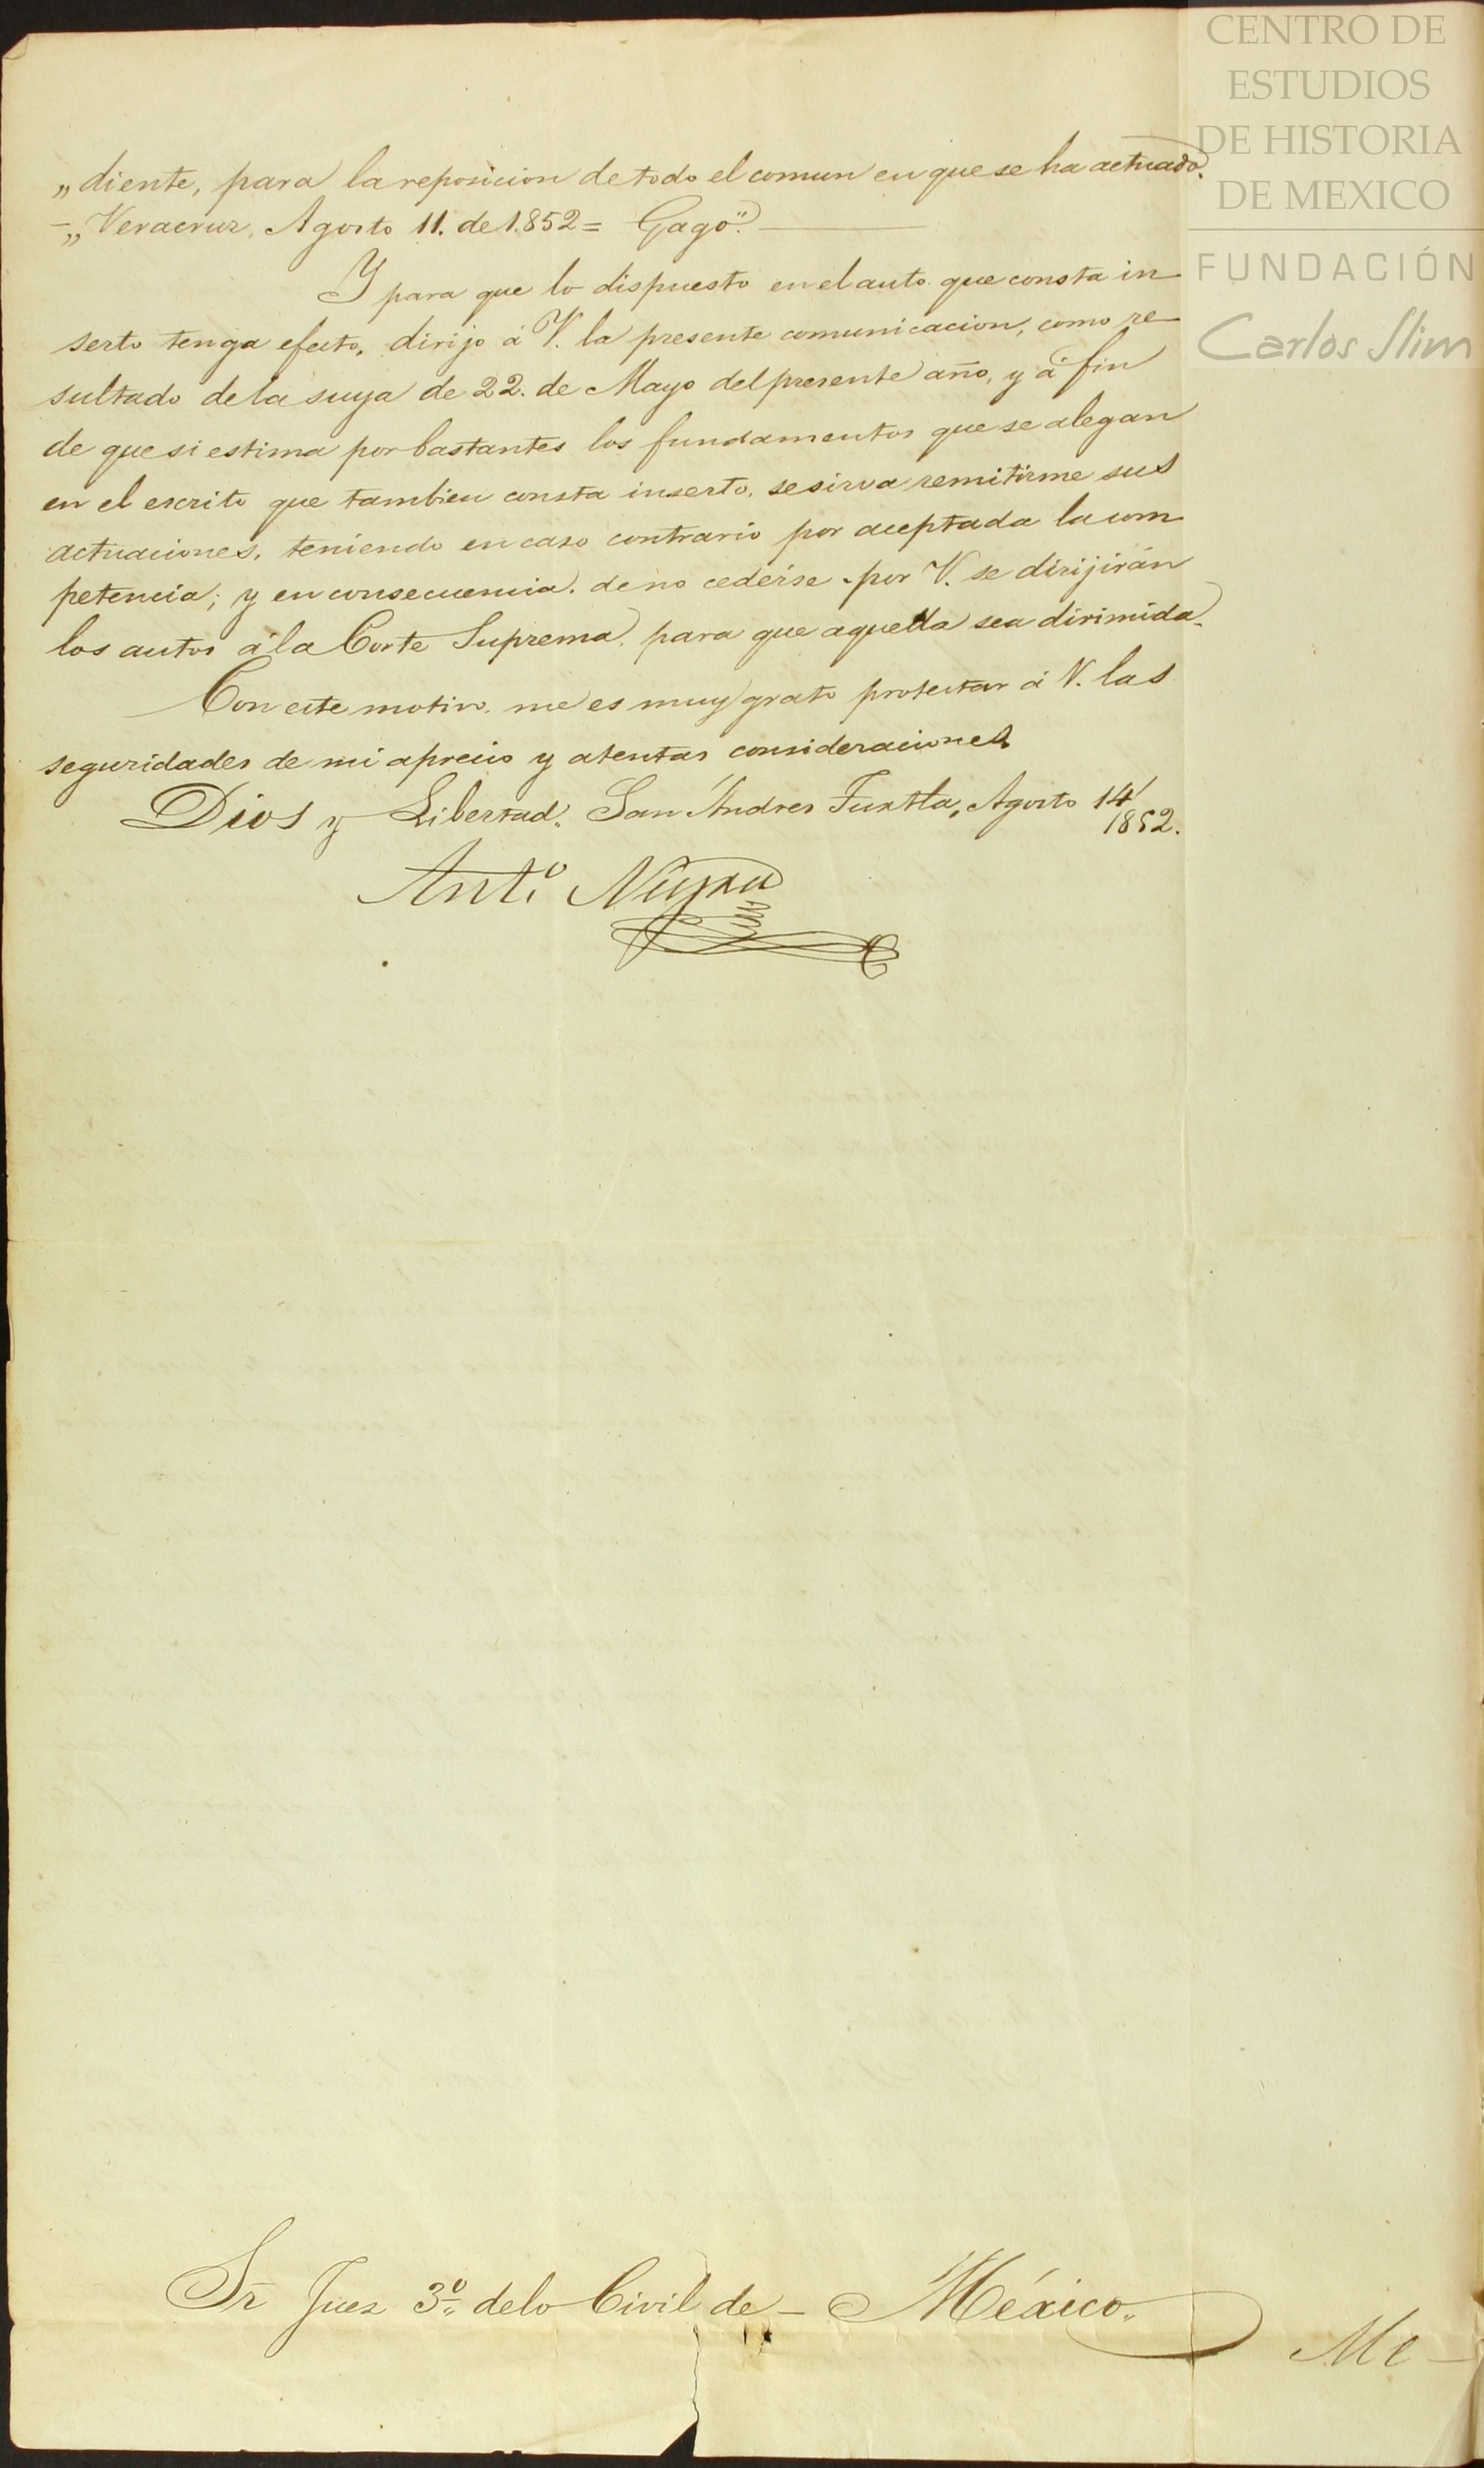 CENTRO DE
ESTUDIOS
DE HISTORIA
DE MEXICO
FUNDACIÓN
Carlos Slim
„diente, para la reposicion de todo el comun en que se ha actuado.
–„Veracruz, Agosto 11. de 1852= Gago".
Y para que lo dispuesto en el auto que consta in
serto tenga efecto, dirijo á V. la presente comunicacion, como re
sultado de la suya de 22. de Mayo del presente año, y á fin
de que si estima por bastantes los fundamentos que se alegan
en el escrito que tambien consta inserto, se sirva remitirme sus
actuaciones, teniendo en caso contrario por aceptada la com
petencia; y en consecuencia. de no cederse por V. se dirijirán
los autos á la Corte Suprema, para que aquella sea dirimida.
Con este motivo, me es muy grato protestar á V. las
seguridades de mi aprecio y atentas consideraciones.
Dios y Libertad. San Andres Tuxtla, Agosto 14/
1852.
Ant.º
Sr Juez 3º de lo Civil de – México.
Me–